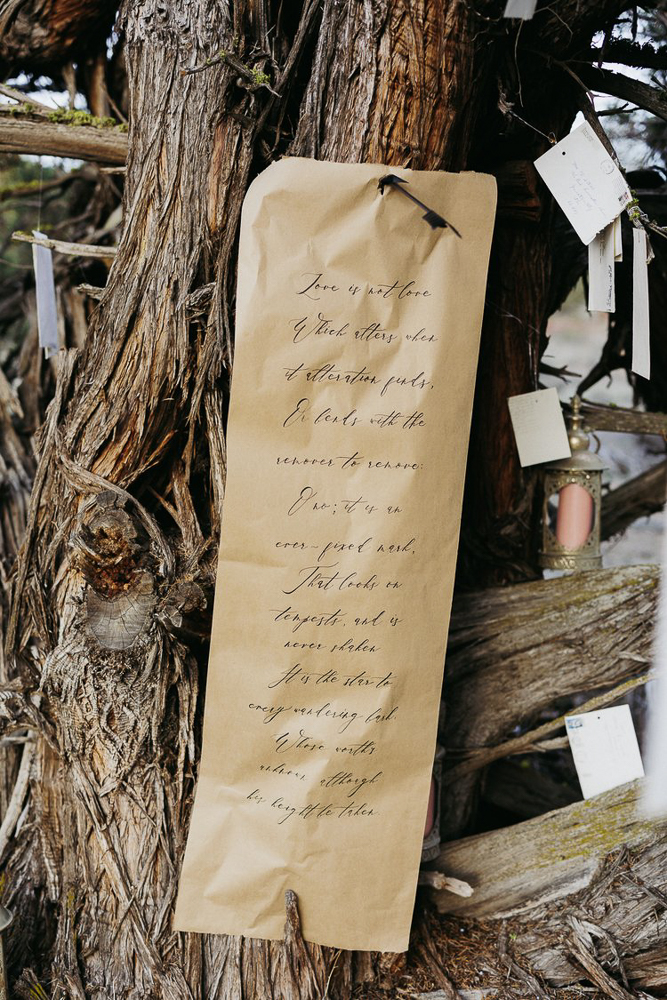 Love is not love
Which alters when
it alteration finds,
Or bends with the
remover to remove:
O no; it is an
ever-fixed mark,
That looks on
tempests, and is
never shaken
It is the star to
every wandering bark,
Whose worths
unknown, although
his height be taken.